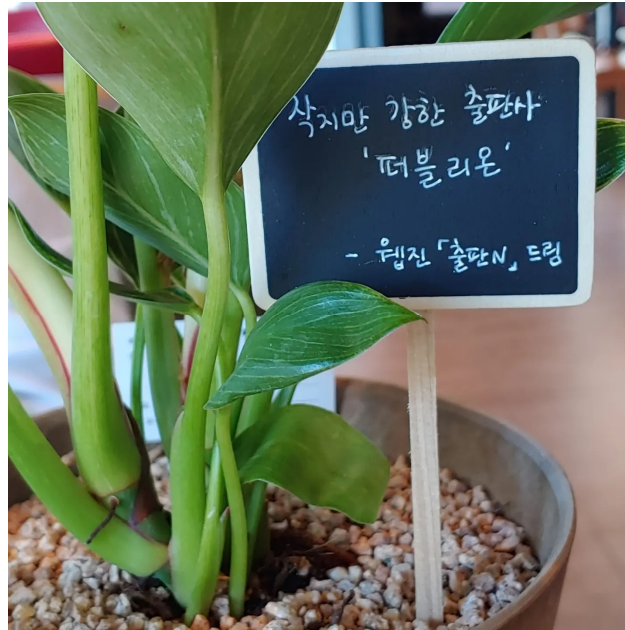 작지만 강한 출판사
'퍼블리온'
- 웹진 「출판N」 드림